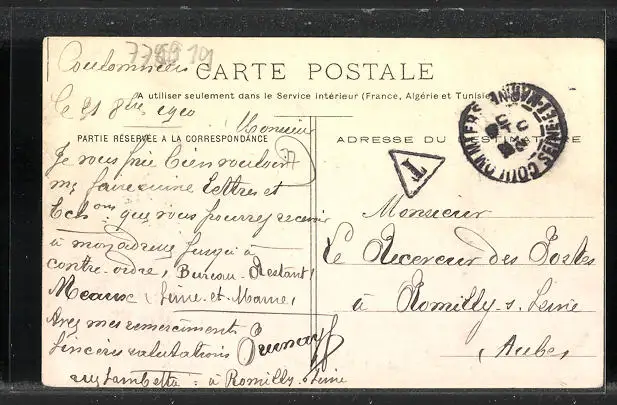 7789 19
Coulommiers
CARTE POSTALE
A utiliser seulement dans le Service intérieur (France, Algérie et Tunisie
Le 21 8bre 1910
Monsieur
PARTIE RÉSERVÉE A LA CORRESPONDANCE
Je vous prie bien vouloir
me faire suivre lettres et
Echons que vous pourrez recevoir
à mon adresse jusqu'à
contre-ordre, Bureau-Restant,
Meaux (Seine-et-Marne,
Avec mes remerciements
Sincères salutations
rue Gambetta = à Romilly s. Seine
ADRESSE DU DESTINATAIRE
T
COULOMMIERS
SEINE-ET-MARNE
Monsieur
Le Receveur des Postes
à Romilly-s.-Seine
Aube